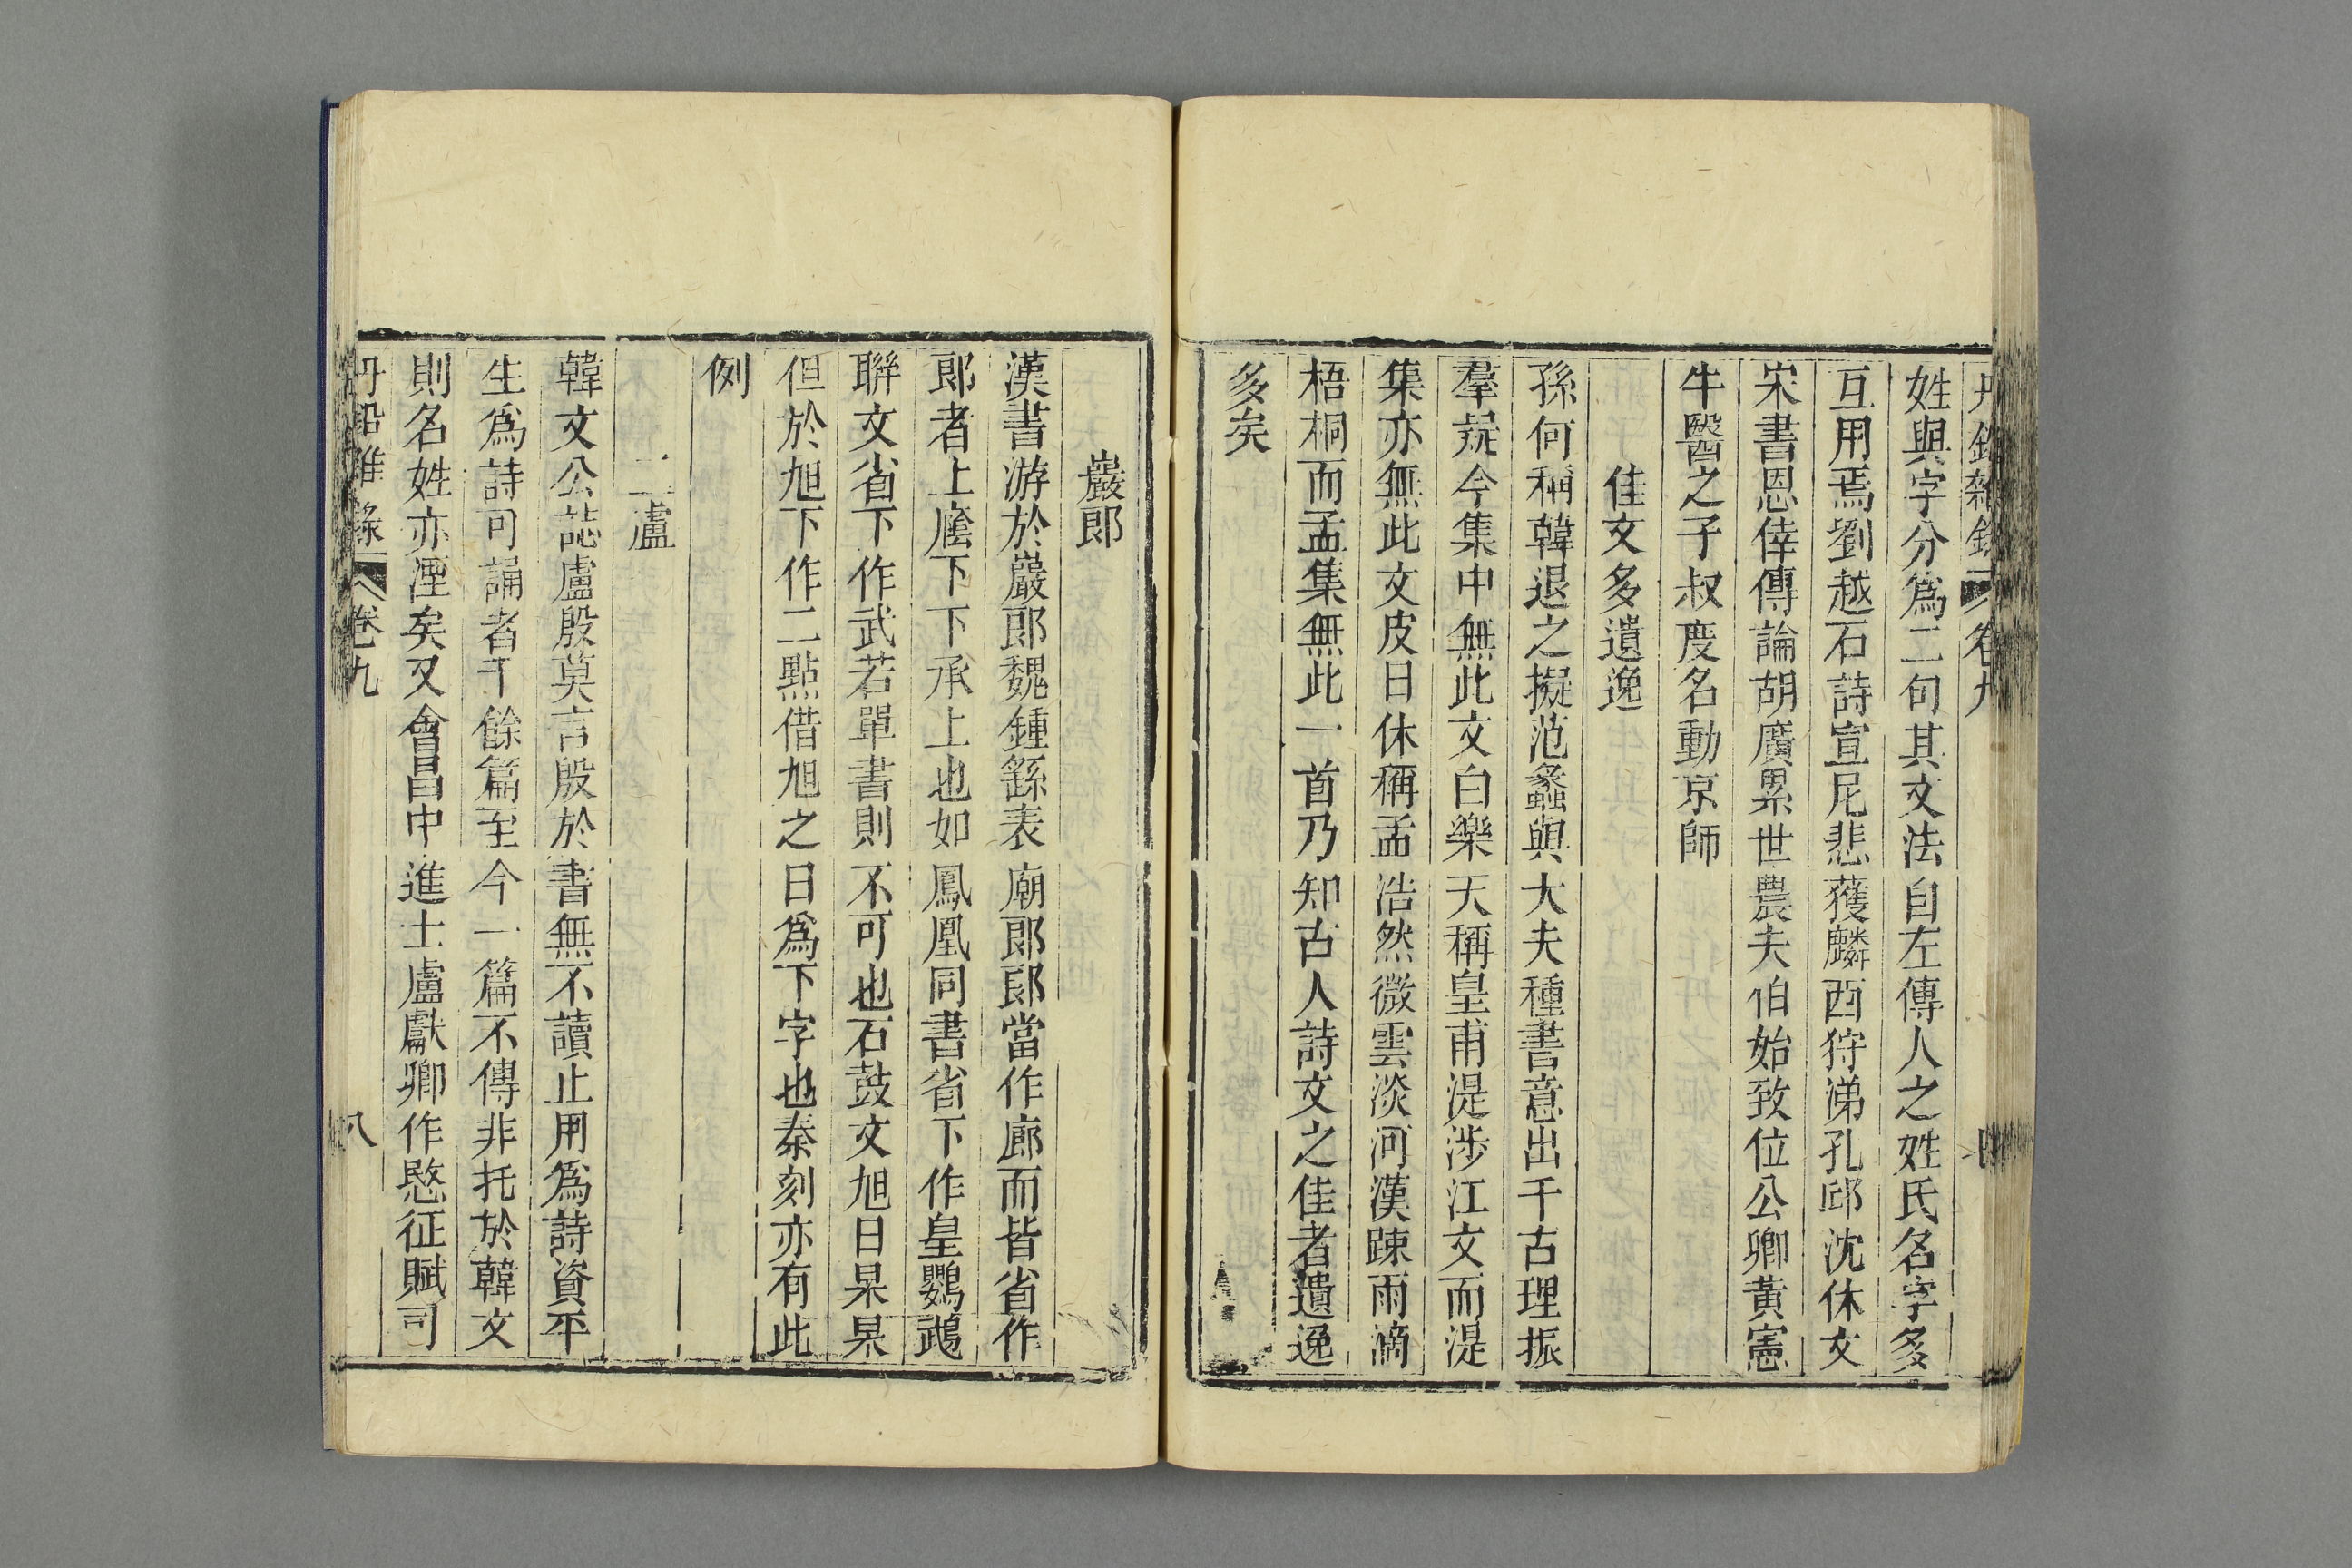 丹鉛雜錄 卷九
姓與字分爲二句其文法自左傳人之姓氏名字多
互用焉劉越石詩宣尼悲獲麟西狩涕孔邱沈休文
宋書恩倖傳論胡廣累世農夫伯始致位公卿黃憲
牛醫之子叔度名動京師
佳文多遺逸
孫何稱韓退之擬范蠡與大夫種書意出千古理振
羣疑今集中無此文白樂天稱皇甫湜涉江文而湜
集亦無此文皮日休稱孟浩然微雲淡河漢踈雨滴
梧桐而孟集無此一首乃知古人詩文之佳者遺逸
多矣
巖郎
漢書游於巖郎魏鍾繇表廟郎郎當作廊而皆省作
郎者上廕下下承上也如鳳凰同書省下作皇鸚鵡
聯文省下作武若單書則不可也石鼓文旭日杲杲
但於旭下作二點借旭之日爲下字也秦刻亦有此
例
二盧
韓文公誌盧殷莫言殷於書無不讀止用爲詩資平
生爲詩可誦者千餘篇至今一篇不傳非托於韓文
則名姓亦湮矣又會昌中進士盧獻卿作愍征賦司
丹鉛雜錄 卷九 八